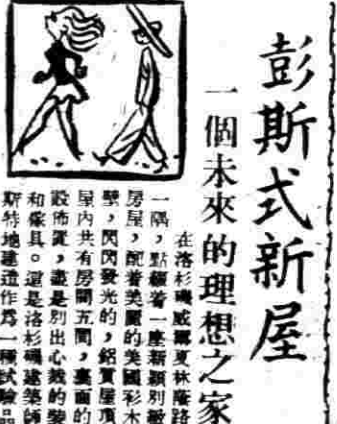 彭斯式新屋
一個未來的理想之家
在洛杉磯威爾夏林蔭路
一隅，點綴着一座新穎別緻
房屋，配着美麗的美國彩木
壁，閃閃發光的，鋁質屋頂
屋內共有房間五間，裏面的
設佈置，盡是別出心裁的裝
和傢具。這是洛杉磯建築師
斯特地建造作爲一種試驗品